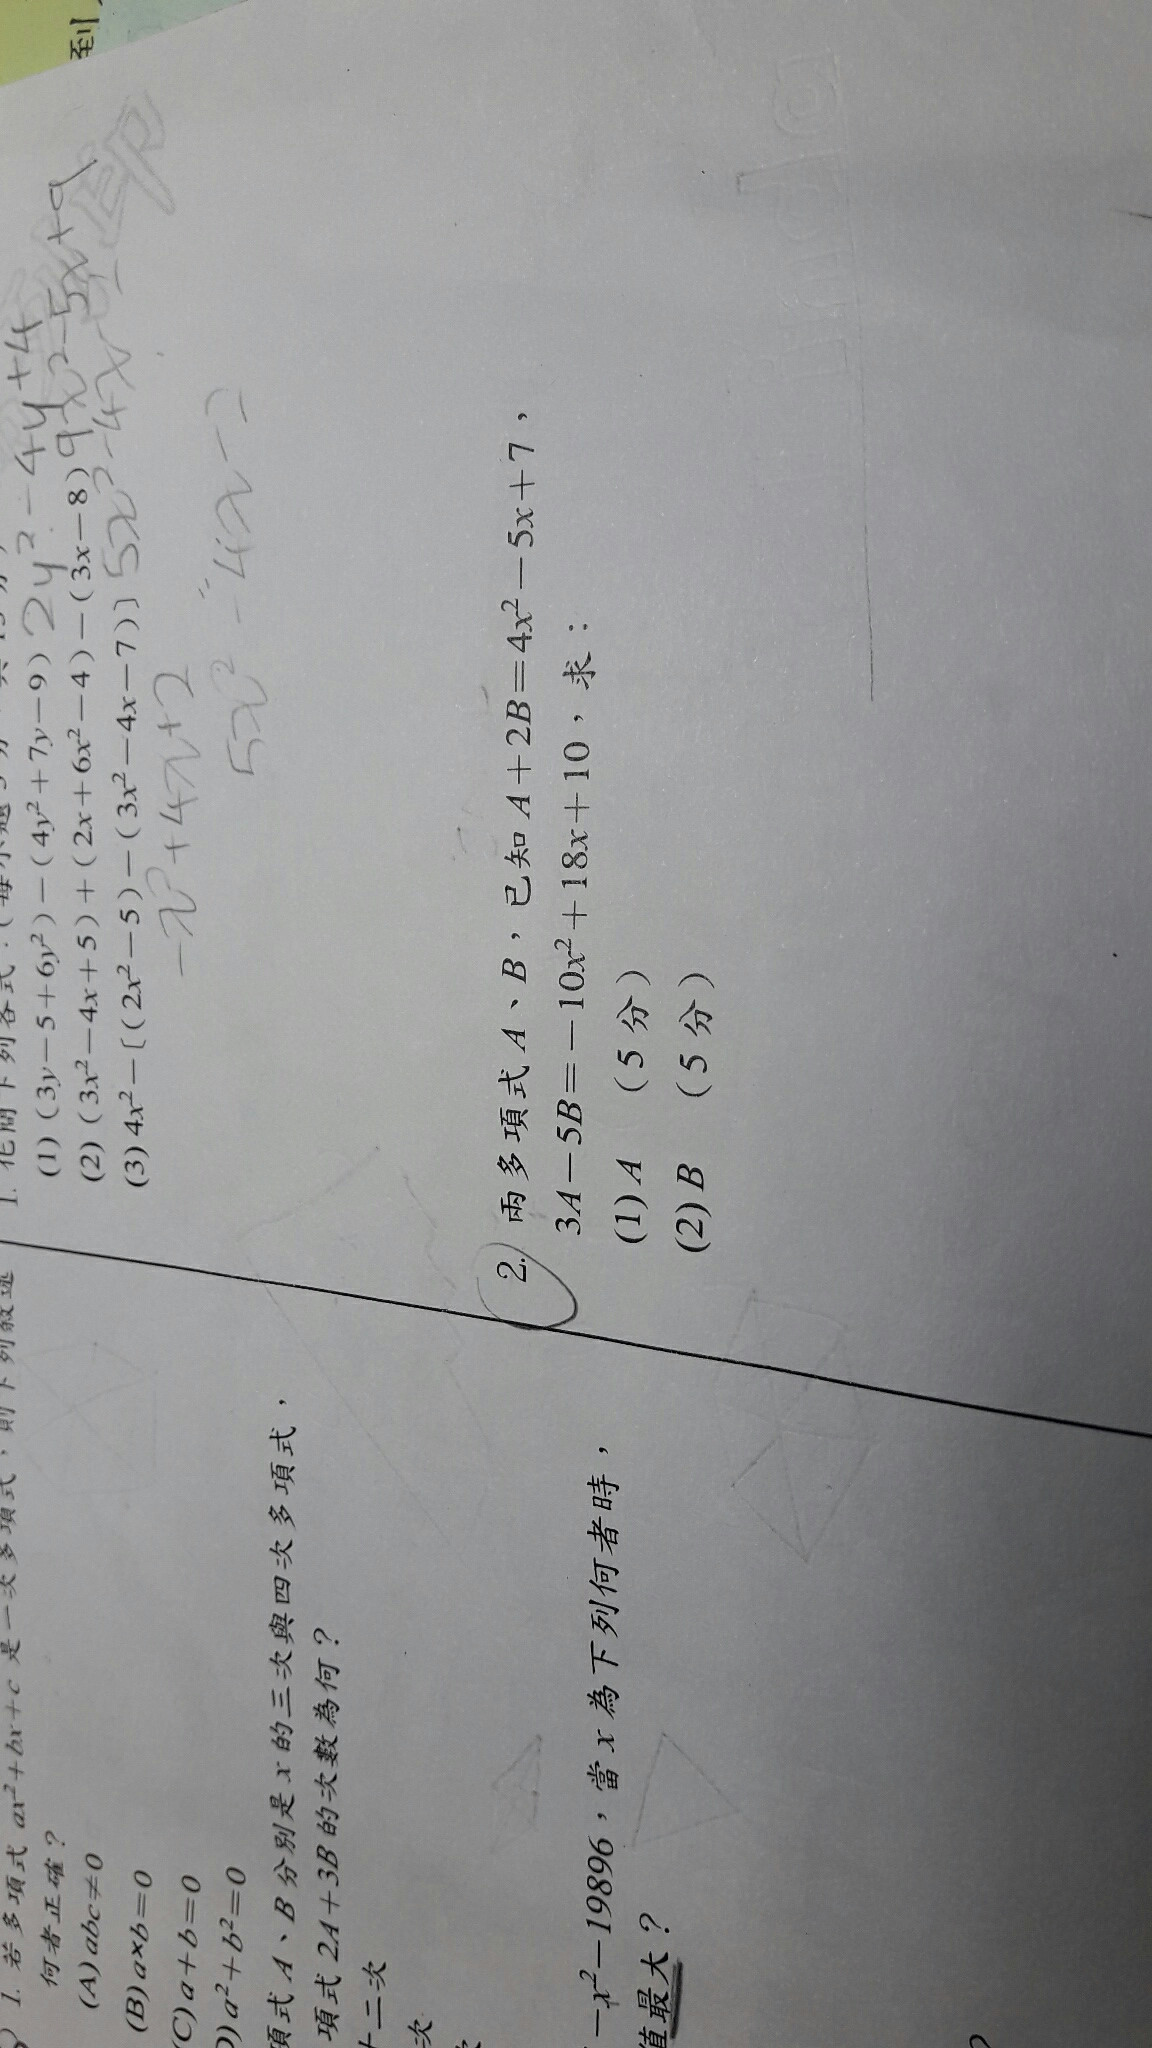 到
1. 若多項式 ax²+bx+c 是一次多項式，則下列敘述
何者正確？
(A) abc≠0
(B) a×b=0
(C) a+b=0
D) a²+b²=0
項式 A、B 分別是 x 的三次與四次多項式，
項式 2A+3B 的次數為何？
十二次
次
次
-x²-19896，當 x 為下列何者時，
值最大？
1. 化簡下列各式：(每小題 5 分，共 15 分)
(1) (3y-5+6y²)-(4y²+7y-9) 2y²-4y+4
(2) (3x²-4x+5)+(2x+6x²-4)-(3x-8) 9x²-5x+9
(3) 4x²-〔(2x²-5)-(3x²-4x-7)〕 5x²-4x-
-x²+4x+2
5x²-4x-2
2. 兩多項式 A、B，已知 A+2B=4x²-5x+7，
3A-5B=-10x²+18x+10，求：
(1) A （5 分）
(2) B （5 分）